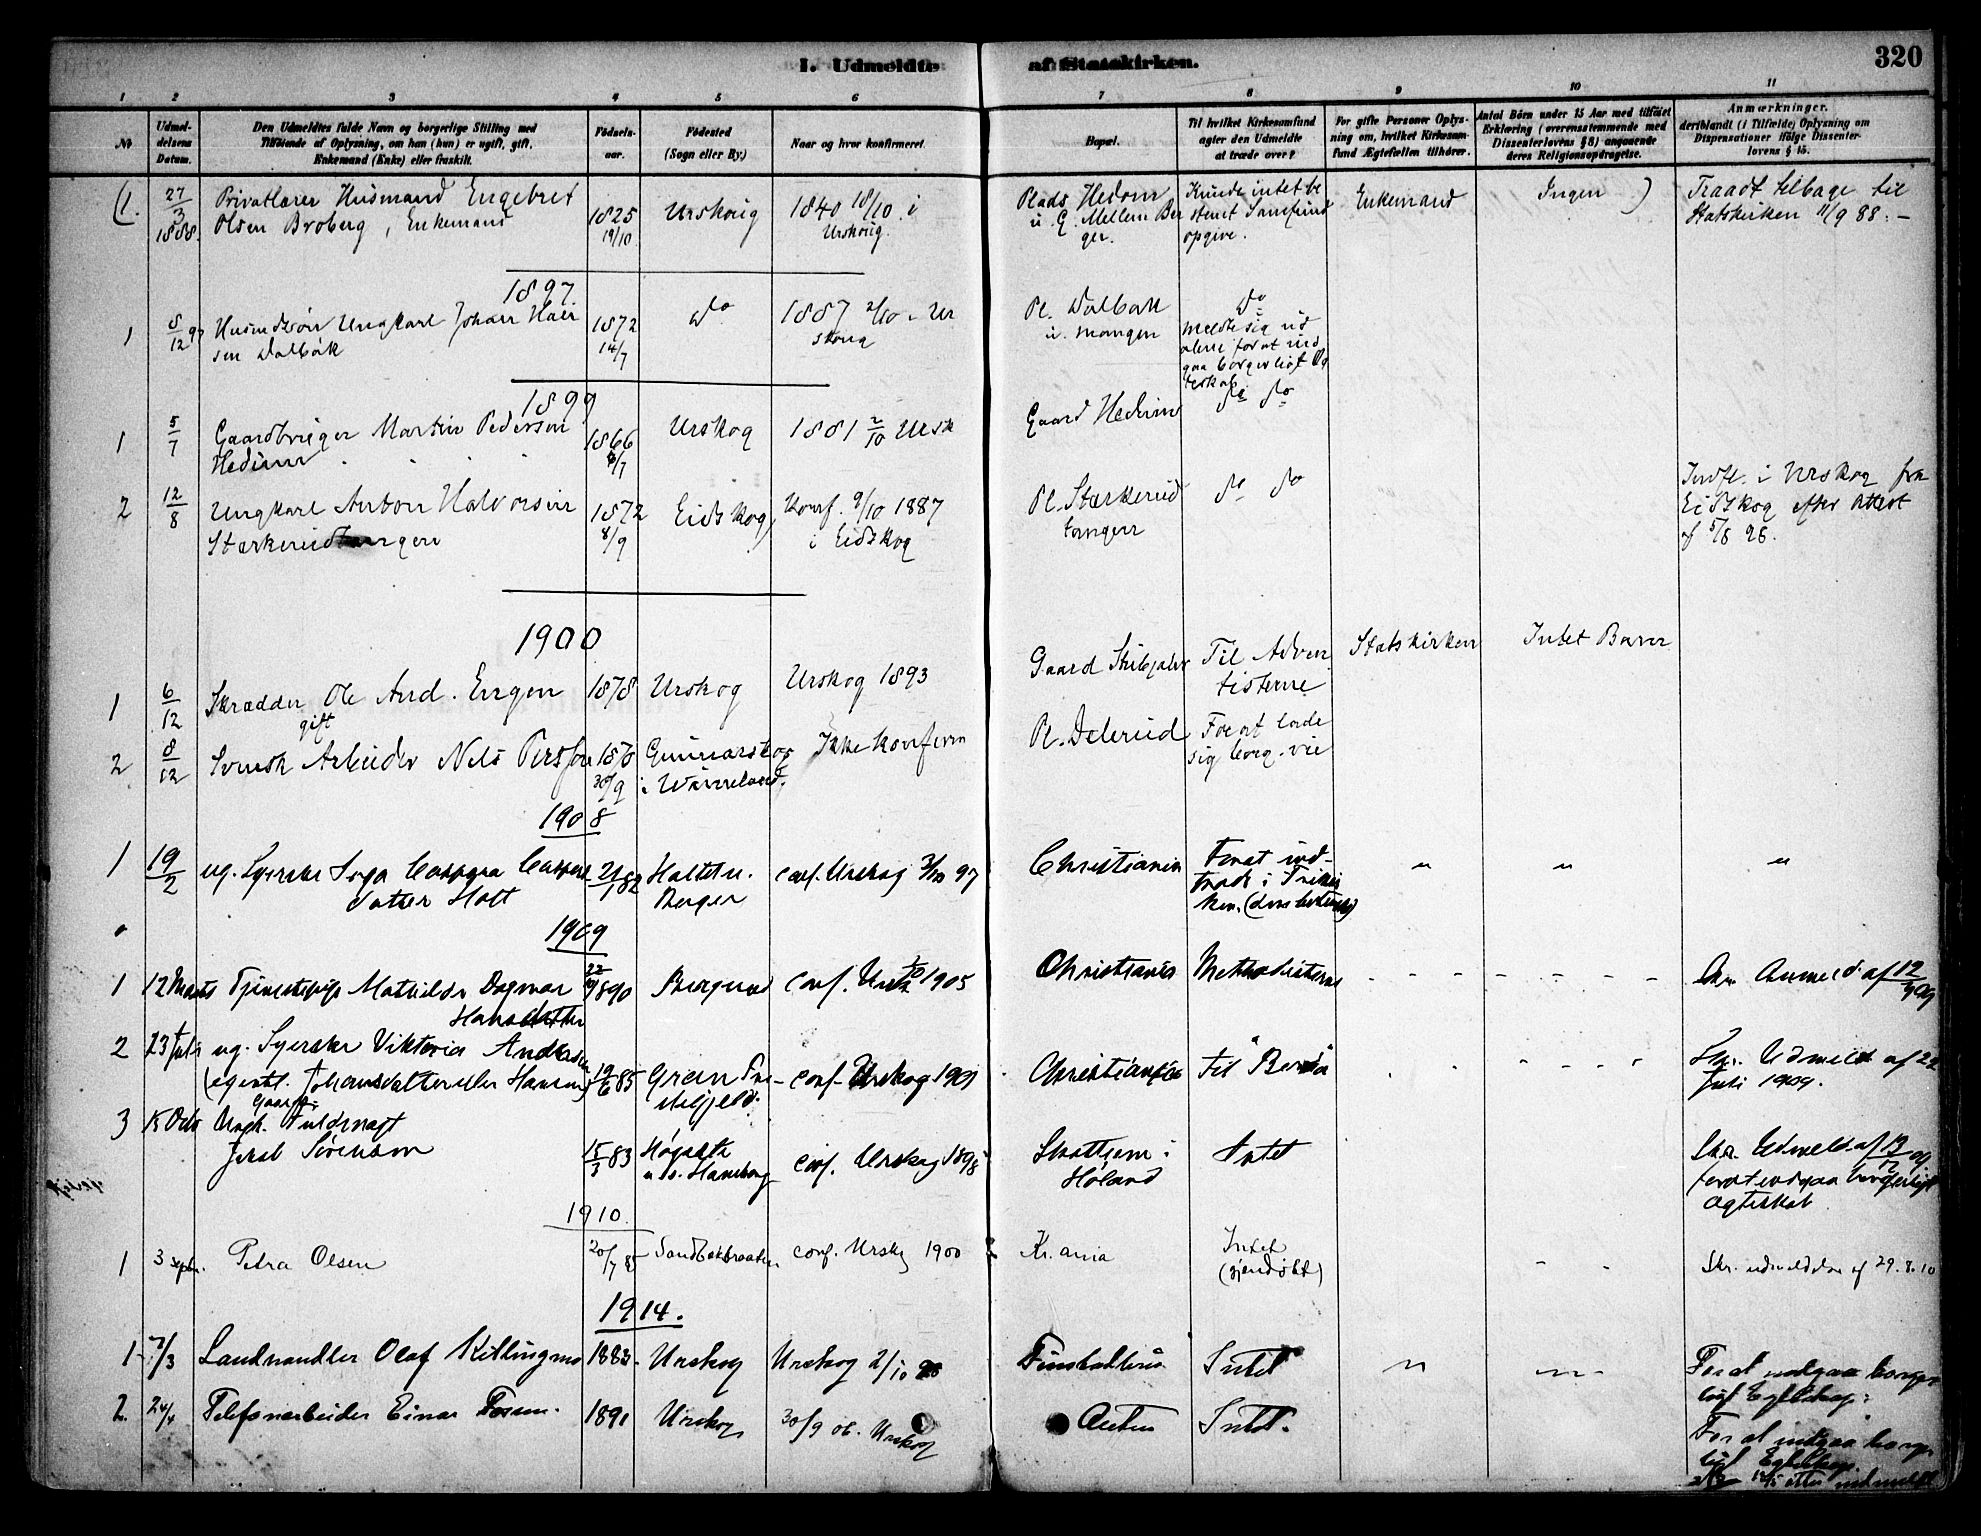 I. Udmeldte af Statskirken.
320
1 2 3 4 5 6 7 8 9 10 11
No
Udmel-
delsens
Datum.
Den Udmeldtes fulde Navn og borgerlige Stilling med
Tilföiende af Oplysning, om han (hun) er ugift, gift,
Enkemand (Enke) eller fraskilt.
Födsels-
aar.
Födested
(Sogn eller By.)
Naar og hvor konfirmeret.
Bopæl.
Til hvilket Kirkesamfund
agter den Udmeldte
at træde over?
For gifte Personer Oplys-
ning om, hvilket Kirkesam-
fund Ægtefællen tilhörer.
Antal Börn under 15 Aar med tilföiet
Erklæring (overensstemmende med
Dissenterloven §8) angaaende
deres Religionsopdragelse.
Anmærkninger.
deriblandt (i Tilfælde) Oplysning om
Dispensationer ifölge Dissenter-
lovens § 15.
(1.
27/3
1888.
Privatlærer Husmand Engebret
Olsen Broberg, Enkemand
1825
19/10
Urskoug
1840 18/10 i
Urskoug.
Plads Hedom
u. G. Mellem Ber
ger.
Kunde intet be
stemt Samfund
opgive.
Enkemand
Ingen )
Traadt tilbage til
Statskirken 11/9 88. -
1897
1
8/12 97
Husmdssön Ungkarl Johan Han
sen Dalbäk
1872
14/7
Do
1887 2/10 i Ur
skoug
Pl. Dalbæk
u. mangen
Do
meldte sig ud
alene for at ind
gaa borgerligt Æg
teskab.
1899
1
5/7
Gaardbruger Martin Pedersen
Hedum
1866
6/7
Urskog
1881 2/10 Ursk
Gaard Hedum
do do
2
12/8
Ungkarl Anton Halvorsen
Stærkerudtangen
1872
8/9
Eidskog
Konf. 9/10 1887
i Eidskog
Pl. Stærkerud
tangen
do do
Indfl. i Urskog fra
Eidskog efter Attest
af 5/8 96.
1900
1
6/12
Skrædder Ole And. Engen
gift
1878
Urskog
Urskog 1893
Gaard
Til Adven
tisterne
Statskirken
Intet Barn
2
8/12
Svensk Arbeider Nels Persson
30/9
Gunnarskog
i Wärmeland.
Ikke konfirm
Pl. Delerud
For at lade
sig borg. vie
1908
1
19/2
ug. Syerske Inga Caspara Casper
datter Holt
21/1 82
Holtet u.
Berger
conf. Urskog 3/10 97
Christiania
For at ind-
træde i Frikir
ken.
" " "
1909
1
12 Marts
Tjenestepige Mathilde Dagmar
Hansdatter
1890
conf. Ursk 1/10 1905
Christiania
Methodisterne
Skr. Anmeld. af 12/3 09
2
23 Juli
ug. Syerske Viktoria Andersen
(egentl. Johansdatter eller Hansen)
19/6 85
Gran
conf. Urskog 1901
Christiania
til "Berøa"
Skr. Udmeld af 22
Juli 1909.
3
15 Octo
Ungk. Fuldmægt
Jacob Sörensen
15/3 83
u. s. Haneborg
conf. Urskog 1898
i
Höland
Intet
Skr. Udmeld. af 13/12 09
for at indgaa borgerligt
Ægteskab
1910.
1
3 septbr.
Petra Olsen
20/7 85
Sandbækbraaten
conf. Urskg 1900
Kr.ania
Intet
(gjendøbt)
Skr. udmeldelse af 29.8.10
1914.
1
7/3
Landhandler Olaf Killingmo
1883.
Urskog
Urskog 2/10 98
Finstadbru
Intet
" "
For at indgaa borger
ligt Egteskap.
2.
24/4
Telefonarbeider Einar Fossum.
1891
Urskog
30/9 06. Urskog
Intet.
For at indgaa borger
ligt Egteskap.